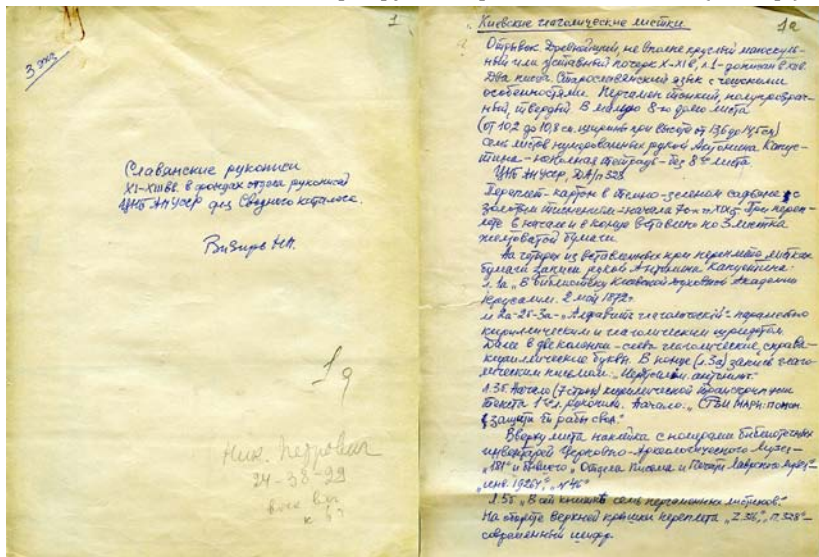 1
3 экз
Славянские рукописи
XI-XIII вв. в фондах отдела рукописей
ЦНБ АН УССР для Сводного каталога.
Визирь Н.П.
1а
Ник. Петрович
24-38-29
1а
Киевские глаголические листки
Отрывок. Древнейший, не вполне круглый
или уставный почерк X-XI в, л. 1-
Два писца. Старославянский язык с чешскими
особенностями. Пергамен тонкий, полупрозрач-
ный, твердый. В малую 8-ю долю листа
(от 10,2 до 10,8 см. ширины при высоте от 13,6 до 14,5 см)
семь листов нумерованных рукой Антонина Капус-
тина - неполная тетрадь - без 8-го листа.
ЦНБ АН УССР, ДА/п 328
Переплет - картон в темно-зеленом с
золотым тиснением - начала 70-х гг XIX в. При переп-
лете в начале и в конце вставлено по 3 листка
желтоватой бумаги.
На четырех из вставленных при переплете листках
бумаги записи рукой Антонина Капустина:
л. 1а „В библиотеку Киевской духовной Академии
Иерусалим. 2 май 1872г.
л 2а-2б-3а-„Алфавитъ глаголическій“
кириллическим и глаголическим
Далее в две колонки - слева глаголические, справа-
кириллические буквы. В конце (л. 3а) запись глаго-
лическим письмом:
л. 3б. Начало (7 строк) кириллической транскрипции
текста 1-го л. рукописи. Начало:
Вверху листа наклейка с номерами библиотечных
инвентарей Церковно-Археологического Музея-
„181“ и бывшего „Отдела Письма и Печати Лаврского Музея“-
„инв. 19264“, „№ 46“
л. 5б „В сей книжке семь пергаменных листиков.“
На обороте верхней крышки переплета „Z.316“, „П.328“-
современный шифр.